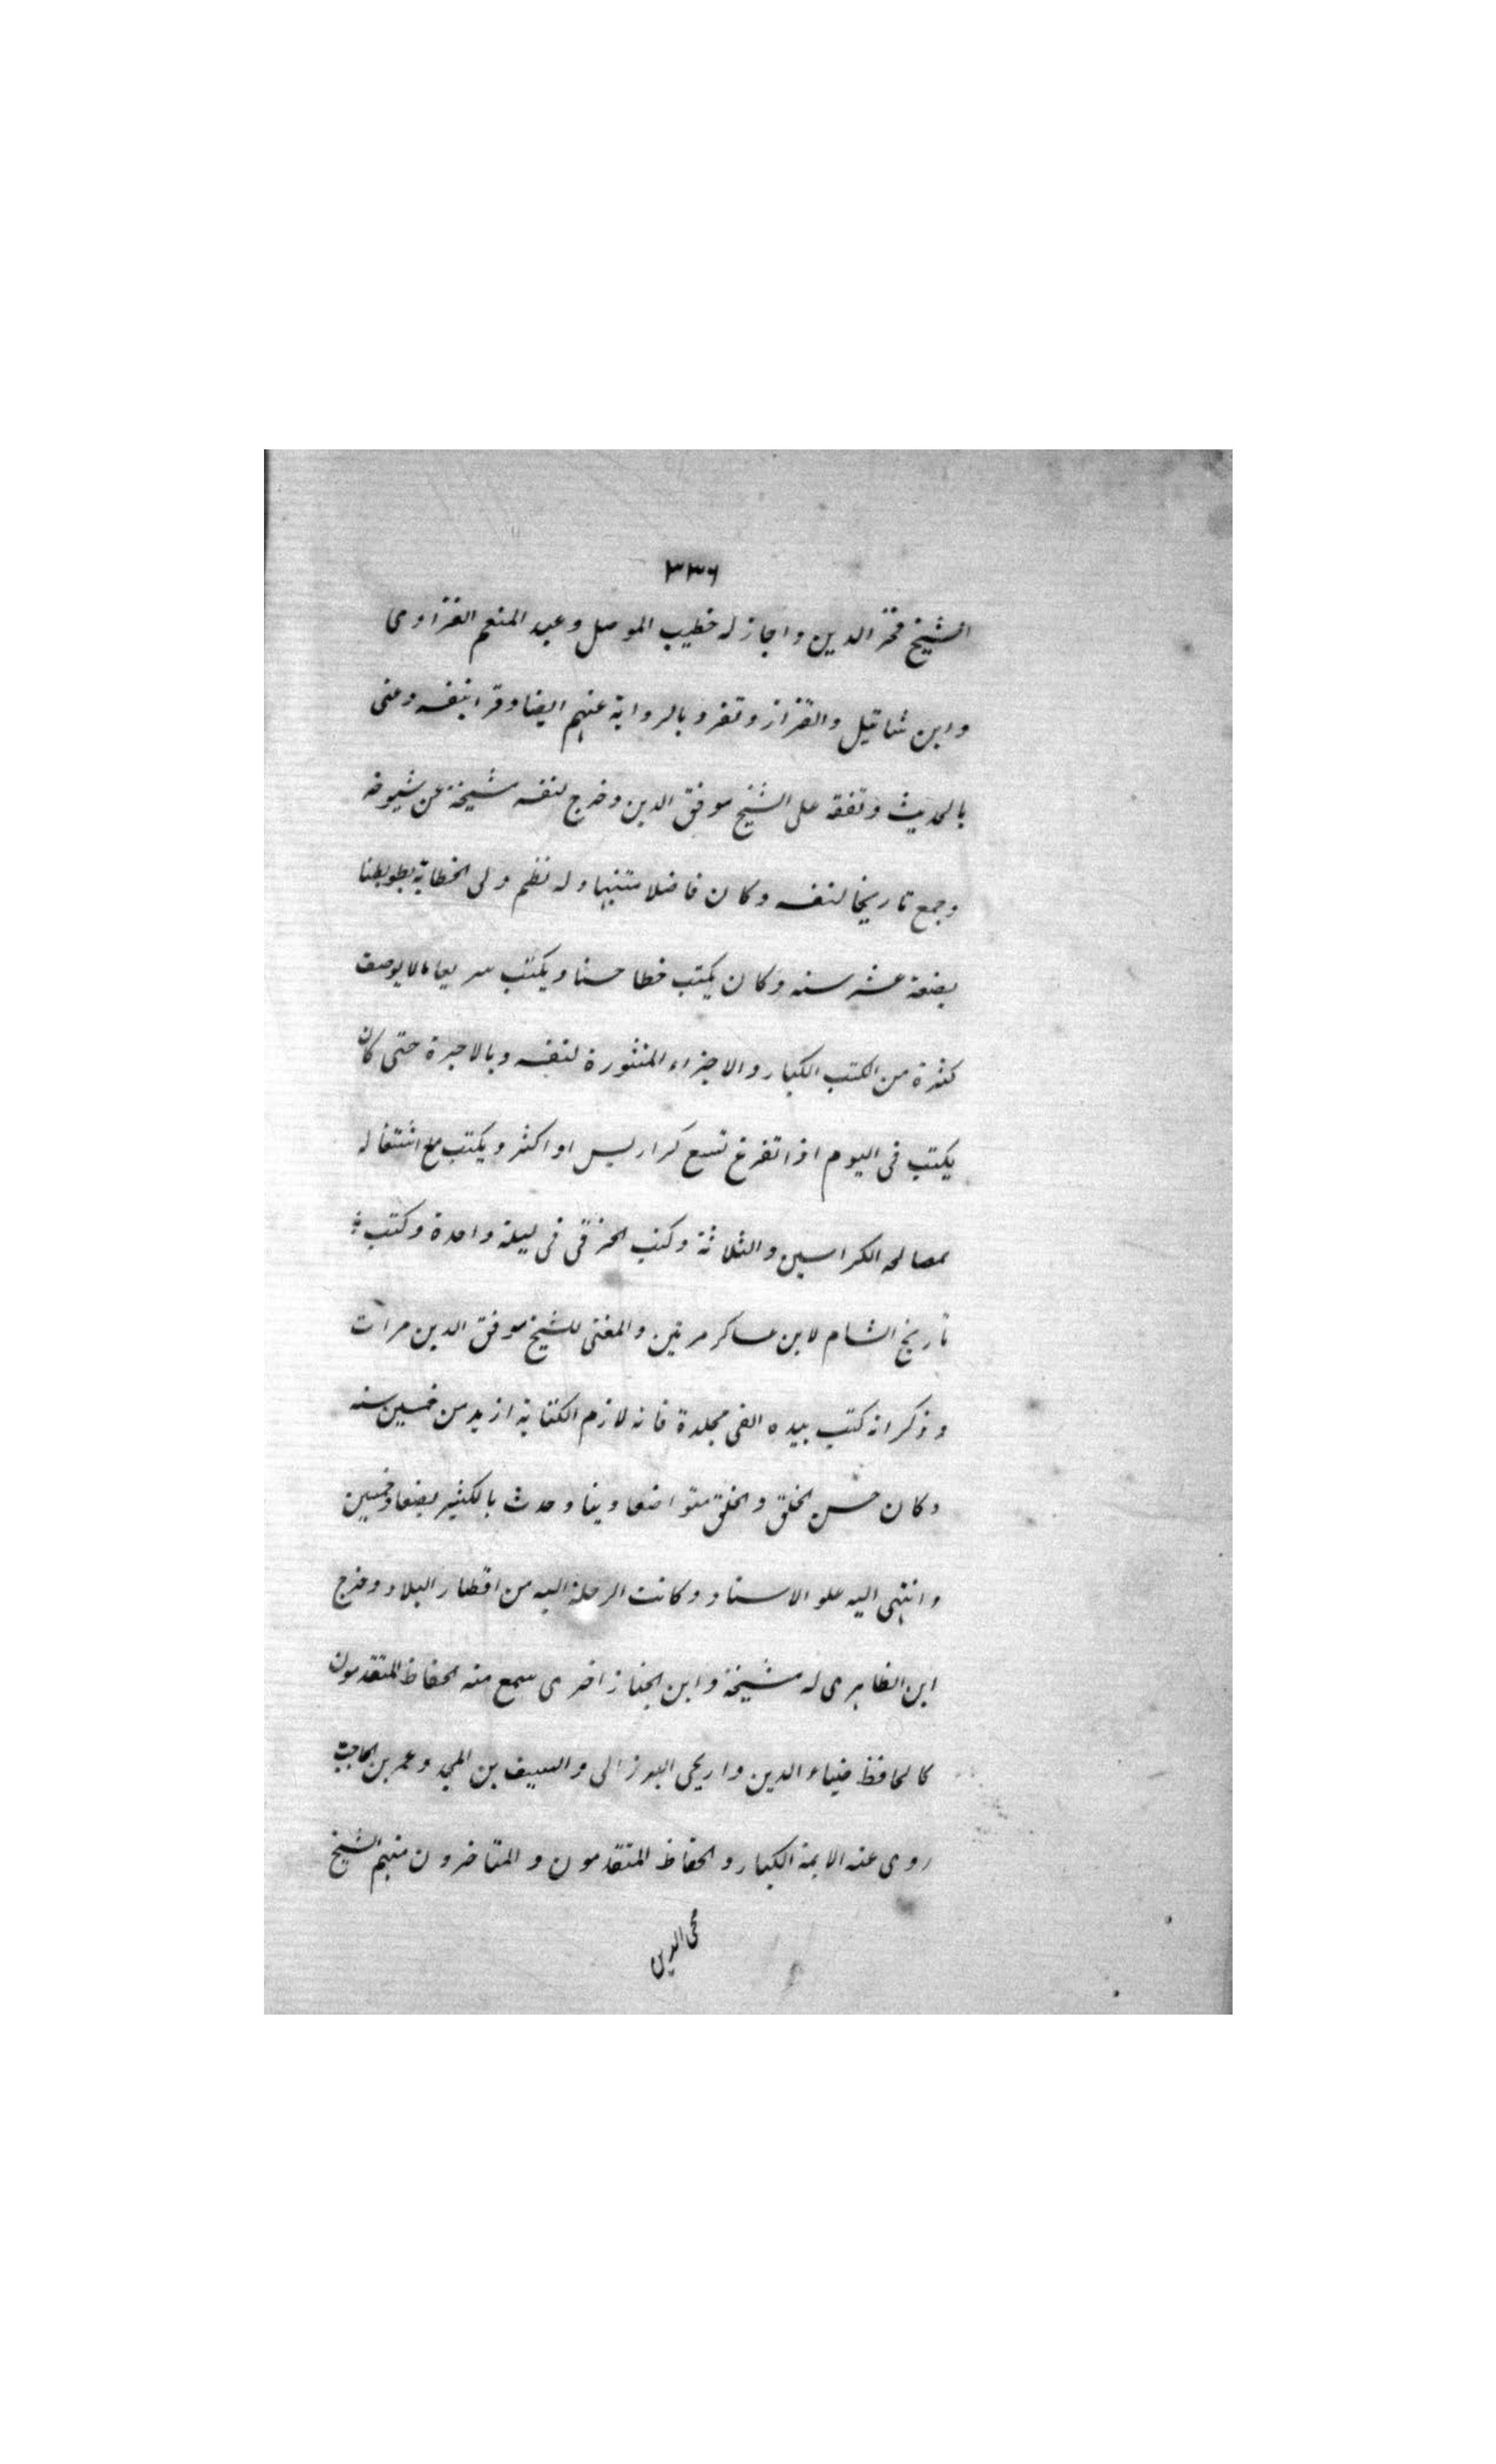 ٣٣٦
الشيخ فخر الدين واجاز له خطيب الموصل وعبد المنعم الفراوى
وابن شاتيل والقزاز وتفرد بالرواية عنهم ايضا وقرا بنفسه وعنى
بالحديث وتفقه على الشيخ موفق الدين وخرج لنفسه مشيخة عن شيوخه
وجمع تاريخا لنفسه وكان فاضلا متنبها وله نظم ولى الخطابة
بضعة عشر سنه وكان يكتب خطا حسنا ويكتب سريعا مالا يوصف
كثرة من الكتب الكبار والاجزاء المنثورة لنفسه وبالاجرة حتى كان
يكتب فى اليوم اذا تفرغ تسع كراريس او اكثر ويكتب مع اشتغاله
بمصالحه الكراسين والثلاثة وكتب الخرقى فى ليلة واحدة وكتب
تاريخ الشام لابن عساكر مرتين والمغنى للشيخ موفق الدين مرات
وذكر انه كتب بيده الفى مجلدة فانه لازم الكتابة ازيد من خمسين سنه
وكان حسن الخلق والخلق متواضعا دينا وحدث بالكثير بضعا وخمسين
وانتهى اليه علو الاسناد وكانت الرحلة اليه من اقطار البلاد وخرج
ابن الظاهرى له مشيخة وابن الخباز اخرى سمع منه الحفاظ المتقدمون
كالحافظ ضياء الدين البرزالى والسيف بن المجد وعمر بن الحاجب
روى عنه الايمة الكبار والحفاظ المتقدمون والمتاخرون منهم الشيخ
محى الدين